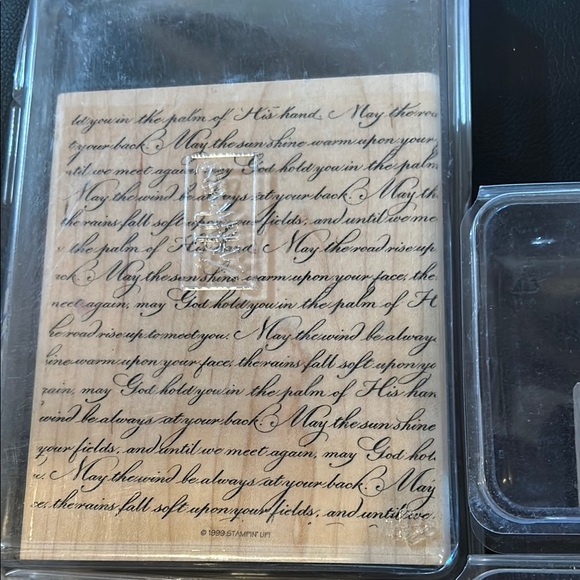 let you in the palm of His hand. May the roa
t your back. May the sun shine warm upon your
ntil we meet again, may God hold you in the palm
May the wind be always at your back. May th
the rains fall soft upon your fields, and until we me
the palm of His hand. May the road rise up
ack. May the sun shine warm upon your face, the
neet again, may God hold you in the palm of H
he road rise up to meet you. May the wind be alway
ine warm upon your face; the rains fall soft upon yo
gain, may God hold you in the palm of His han
wind be always at your back. May the sun shine
your fields, and until we meet again, may God hol
May the wind be always at your back. May
ce, the rains fall soft upon your fields, and until we
© 1999 STAMPIN' UP!